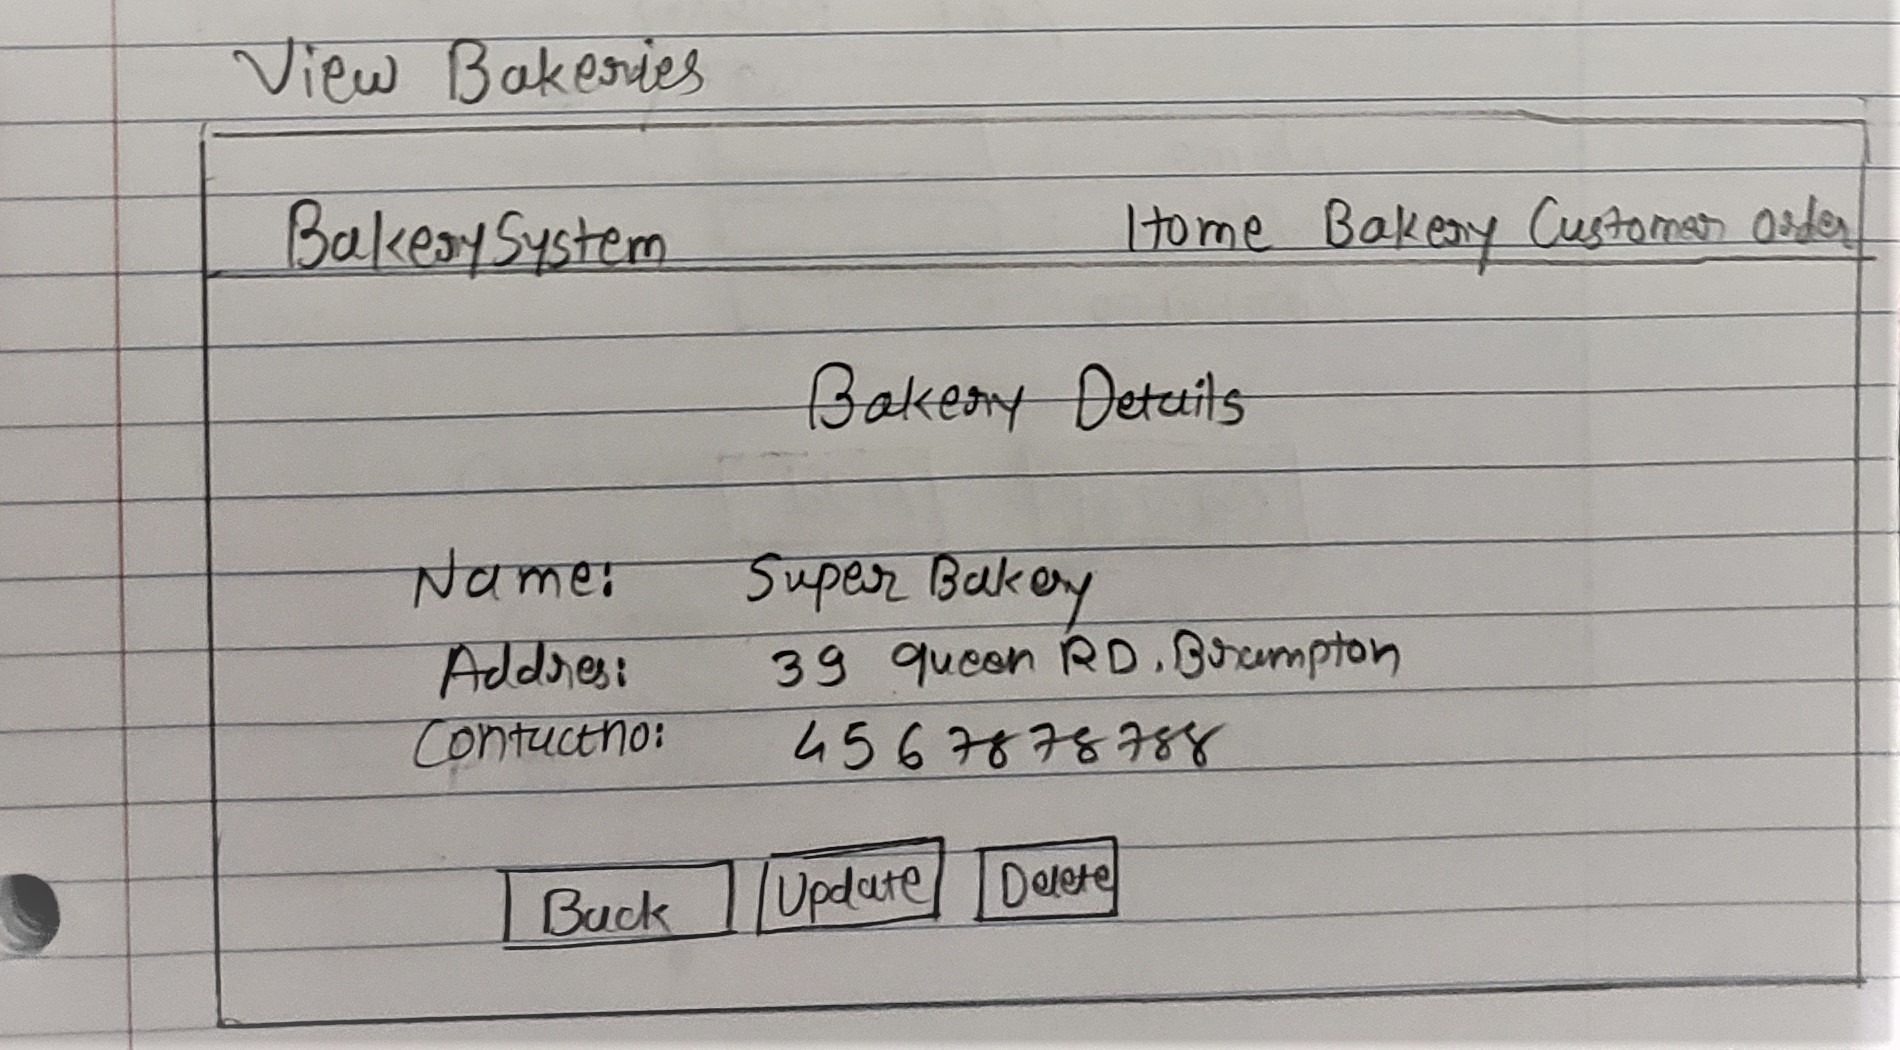 View Bakeries
BakerySystem Home Bakery Customer Order
Bakery Details
Name: Super Bakery
Addres: 39 queen RD, Brampton
Contactno: 4567878788
Back Update Delete